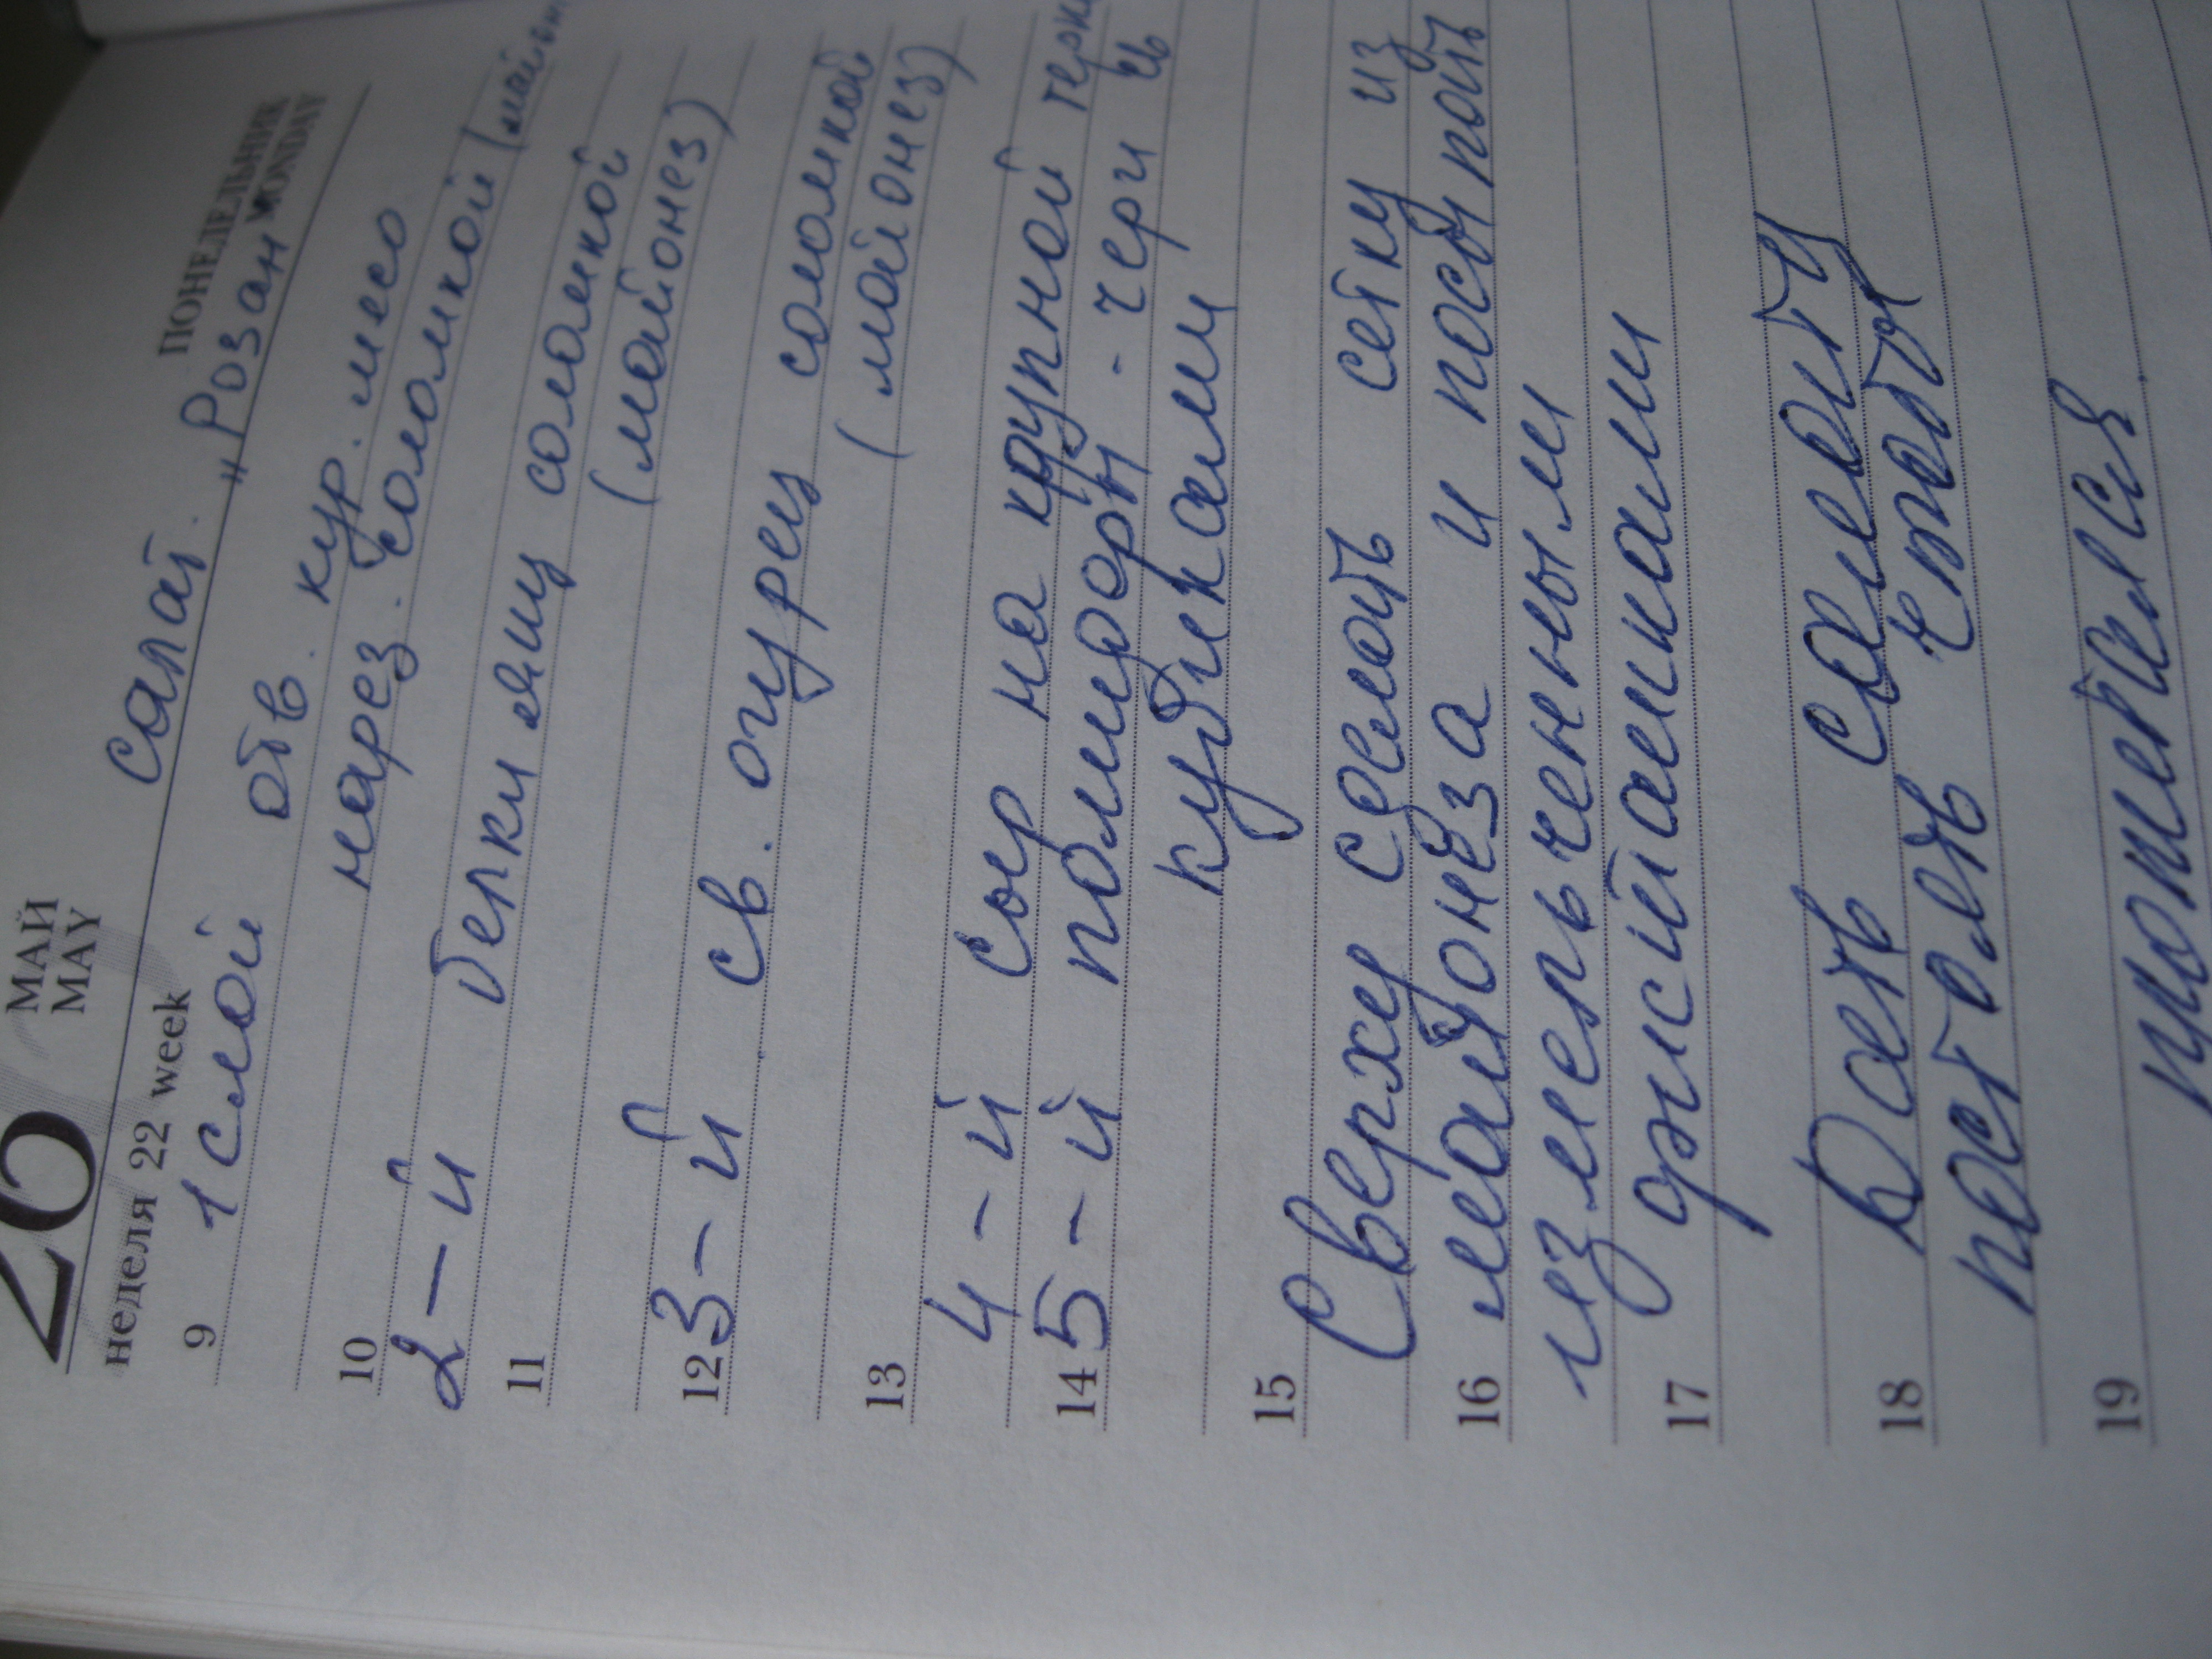 26 МАЙ ПОНЕДЕЛЬНИК
MAY MONDAY
неделя 22 week
Салат. „Розан"
9 1 слой отв. кур. мясо
нарез. соломкой (майон
10
2-й белки яиц соломкой
11 (майонез)
12 3-й св. огурец соломкой
(майонез)
13
4-й сыр на крупной терке
14 5-й помидоры - черн
кубиками
15
Сверху сделать сетку из
16 майонеза и посыпать
измельченными
17 орешками
Дать салату
18 постоять чтобы
19 пропитался